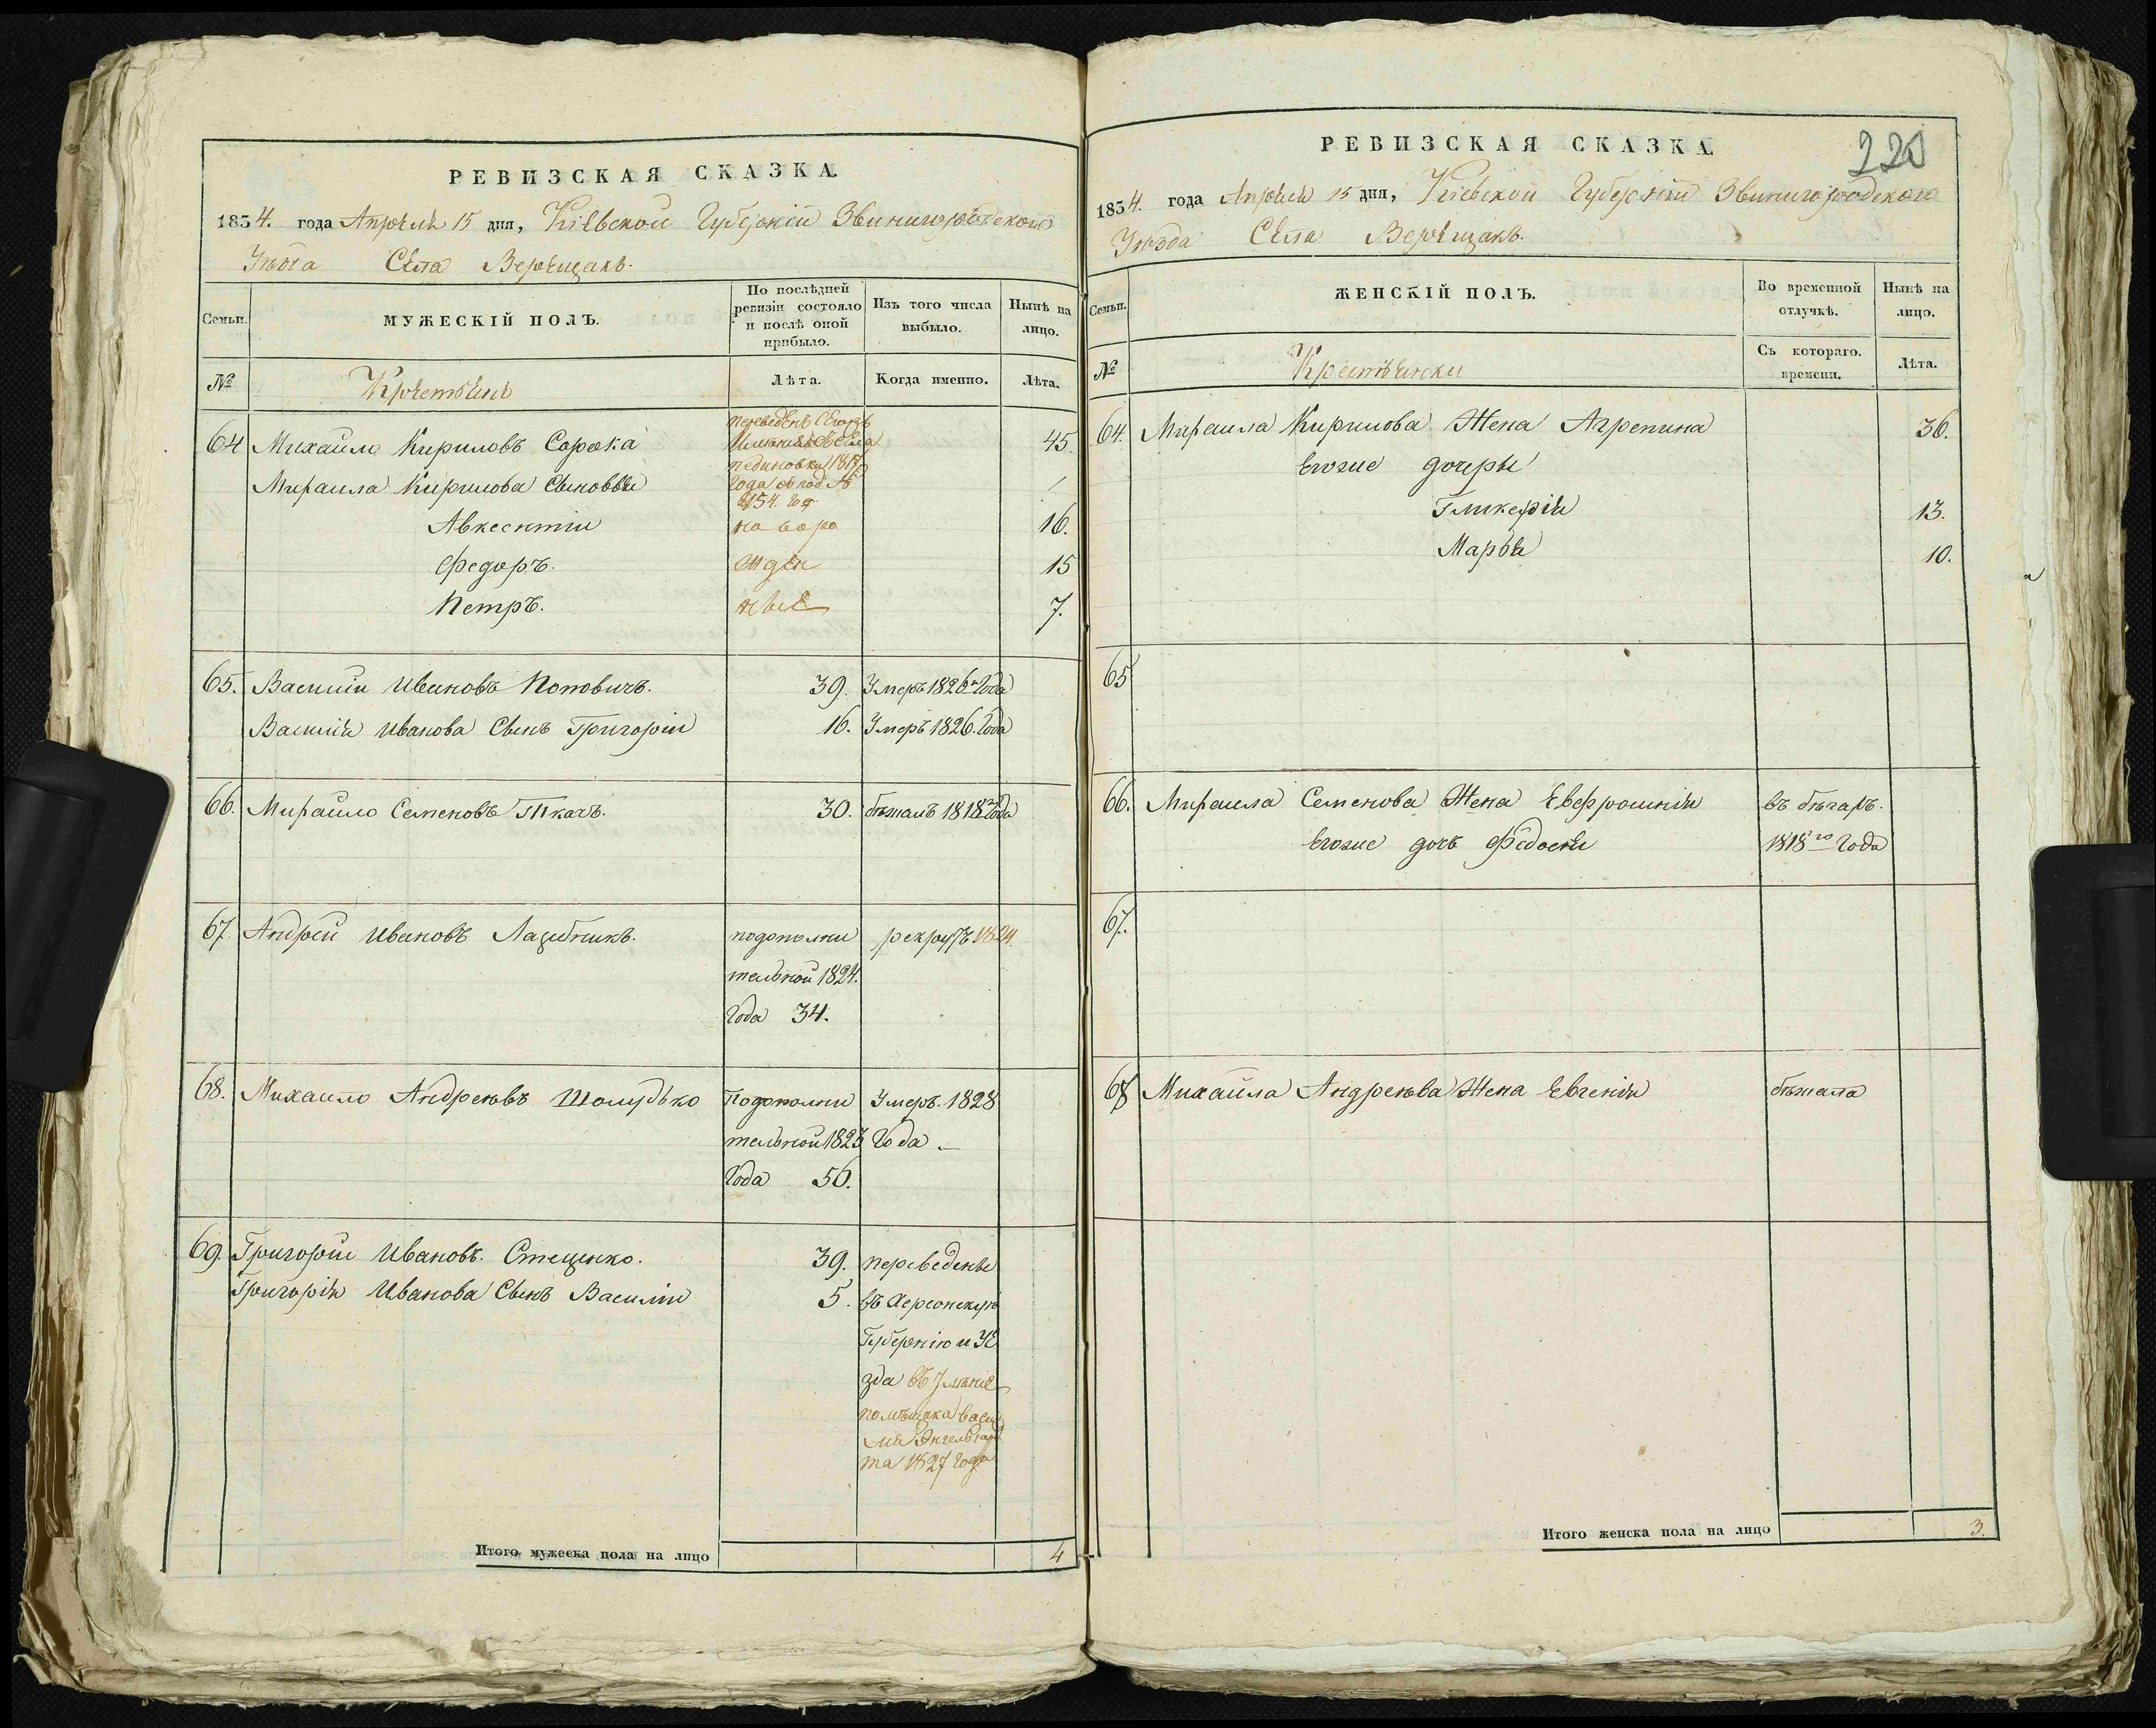 РЕВИЗСКАЯ СКАЗКА.
1834. года Апрѣля 15 дня, Кіевской Губерніи Звинигородского
Уѣзда Села Верещакъ.
Семьи.
МУЖЕСКІЙ ПОЛЪ.
По послѣдней ревизіи состояло и послѣ оной прибыло.
Изъ того числа выбыло.
Нынѣ на лицо.
№
Крестьянъ
Лѣта.
Когда именно.
Лѣта.
64 Михайло Кириловъ Сорока 45.
переведенъ
1817
года
Михаила Кирилова Сыновья
Авксентіи 16.
Федоръ. 15
Петръ. 7.
65. Василии Ивановъ Поповичъ. 39. Умеръ 1826 года
Василія Иванова Сынъ Григоріи 16. Умеръ 1826. года
66. Михайло Семеновъ Ткачъ. 30. бѣжалъ 1818 года
67. Андрей Ивановъ подополни рекрутъ 1824.
тельной 1824.
года 34.
68. Михаило Андреевъ Шолудько Подополни Умеръ. 1828
тельной 1823 года.
года 50.
69. Григорій Ивановъ. Стеценко. 39. переведены
Григорія Иванова Сынъ Василіи 5. въ Херсонскую
Губернію и Уѣ
зда въ имѣніе
помѣщика Васи
лія Энгельгард
та 1827 года
Итого мужеска пола на лицо 4
РЕВИЗСКАЯ СКАЗКА.
220
1834. года Апрѣля 15 дня, Кіевской Губерніи Звинигородского
Уѣзда Села Верещакъ.
Семьи.
ЖЕНСКІЙ ПОЛЪ.
Во временной отлучкѣ.
Нынѣ на лицо.
№
Крестьянки
Съ котораго времени.
Лѣта.
64. Михаила Кирилова Жена Агрепина 36.
Егоже дочеры
Гликерія 13.
Марья 10.
65
66. Михаила Семенова Жена Евфросинія въ бѣгахъ.
Егоже дочь Федосья 1818го года
67.
68 Михаила Андреева Жена Евгенія бѣжала
Итого женска пола на лицо 3.